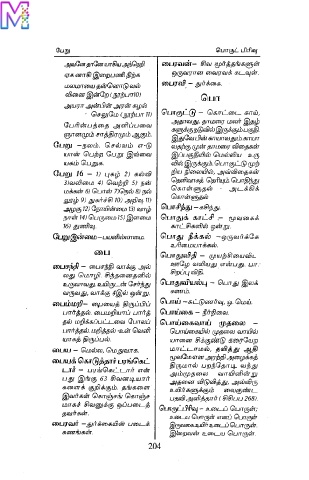 பேறு
பொருட் பிரிவு
அவனே தானே யாகிய அந்நெறி
ஏக னாகி இறைபணி நிற்க
மலமாயை தன்னொடு வல்
வினை இன்றே (நூற்பா10)
அயரா அன்பின் அரன் கழல்
- செலுமே (நூற்பா 11)
பேரின்பத்தை அளிப்பவை
ஞானமும் சாத்திரமும் ஆகும்.
பேறு -நலம். செல்வம் எ-டு
யான் பெற்ற பேறு இவ்வை
யகம் பெறுக.
பேறு 16 - 1) புகழ் 2) கல்வி
3)வலிமை 4) வெற்றி 5) நன்
மக்கள் 6) பொன் 7)நெல் 8) நல்
லூழ் 9) நுகர்ச்சி 10) அறிவு 11)
அழகு 12) நோயின்மை 13) வாழ்
நாள் 14) பெருமை 15) இளமை
16) துணிவு.
பேறுஇன்மை-பயனில்லாமை.
பை
பைசந்தி - பைசந்தி வாக்கு அல்
லது மொழி சிந்தனைதனில்
உருவாவது உயிருடன் சேர்ந்து
வருவது, வாக்கு 4இல் ஒன்று.
பைம்மறி- பையைத் திருப்பிப்
பார்த்தல். பைமறியாப் பார்த்
தல் மறிக்கப்பட்டவை போலப்
பார்த்தல். மறித்தல் உள் வெளி
யாகத் திருப்பல்.
பைய - மெல்ல, மெதுவாக.
பையக் கொடுத்தார் பரங்கெட்
டார் - பரங்கெட்டார் என்
பது இங்கு 63 சிவனடியார்
களைக் குறிக்கும். தங்களை
இவர்கள் கொஞ்சங் கொஞ்ச
மாகச் சிவனுக்கு ஒப்படைத்
தவர்கள்.
பைரவர் -துர்க்கையின் படைக்
கணங்கள்.
பைரவன்- சிவ மூர்த்தங்களுள்
ஒருவரான வைரவக் கடவுள்.
பைரவி - துர்க்கை.
பொ
பொகுட்டு - கொட்டை காய்,
அதாவது, தாமரை மலர் இதழ்
களுக்கு நடுவில் இருக்கும் பகுதி
இதுவே பின் காயாவதும் காயா
வதற்கு முன் தாமரை விதைகள்
இப்பகுதியில் மெல்லிய உரு
வில் இருக்கும். பொகுட்டு முற்
றிய நிலையில், அவ்விதைகள்
தெளிவாகத் தெரியும். பொதிந்து
கொள்ளுதல் - அடக்கிக்
கொள்ளுதல்.
பொசிந்து-கசிந்து.
பொதுக் காட்சி :- மூவகைக்
காட்சிகளில் ஒன்று.
பொது நீக்கல் -ஒருவர்க்கே
உரிமையாக்கல்.
பொதுவிதி - முயற்சியைவிட
ஊழே வலியது என்பது. பா.
சிறப்பு விதி.
பொதுவியல்பு - பொது இலக்
கணம்.
பொய்-கட்டுணர்வு, ஒ. மெய்.
பொய்கை - நீர்நிலை.
பொய்கைவாய் முதலை -
பொய்கையில் முதலை வாயில்
யானை சிக்குண்டு கரையேற
மாட்டாமல், தவித்து ஆதி
மூலமே என அரற்றி அழைக்கத்
திருமால் பறந்தோடி, வந்து
அம்முதலை வாயினின்று
அதனை விடுவித்து, அவ்விரு
உயிர்களுக்கும் வைகுண்ட
பதவி அளித்தார் (சிசிபப 268).
பொருட்பிரிவு - உடைப் பொருள்;
உடைய பொருள் எனப் பொருள்
இருவகை உயிர் உடைப் பொருள்.
இறைவன் உடைய பொருள்.
204